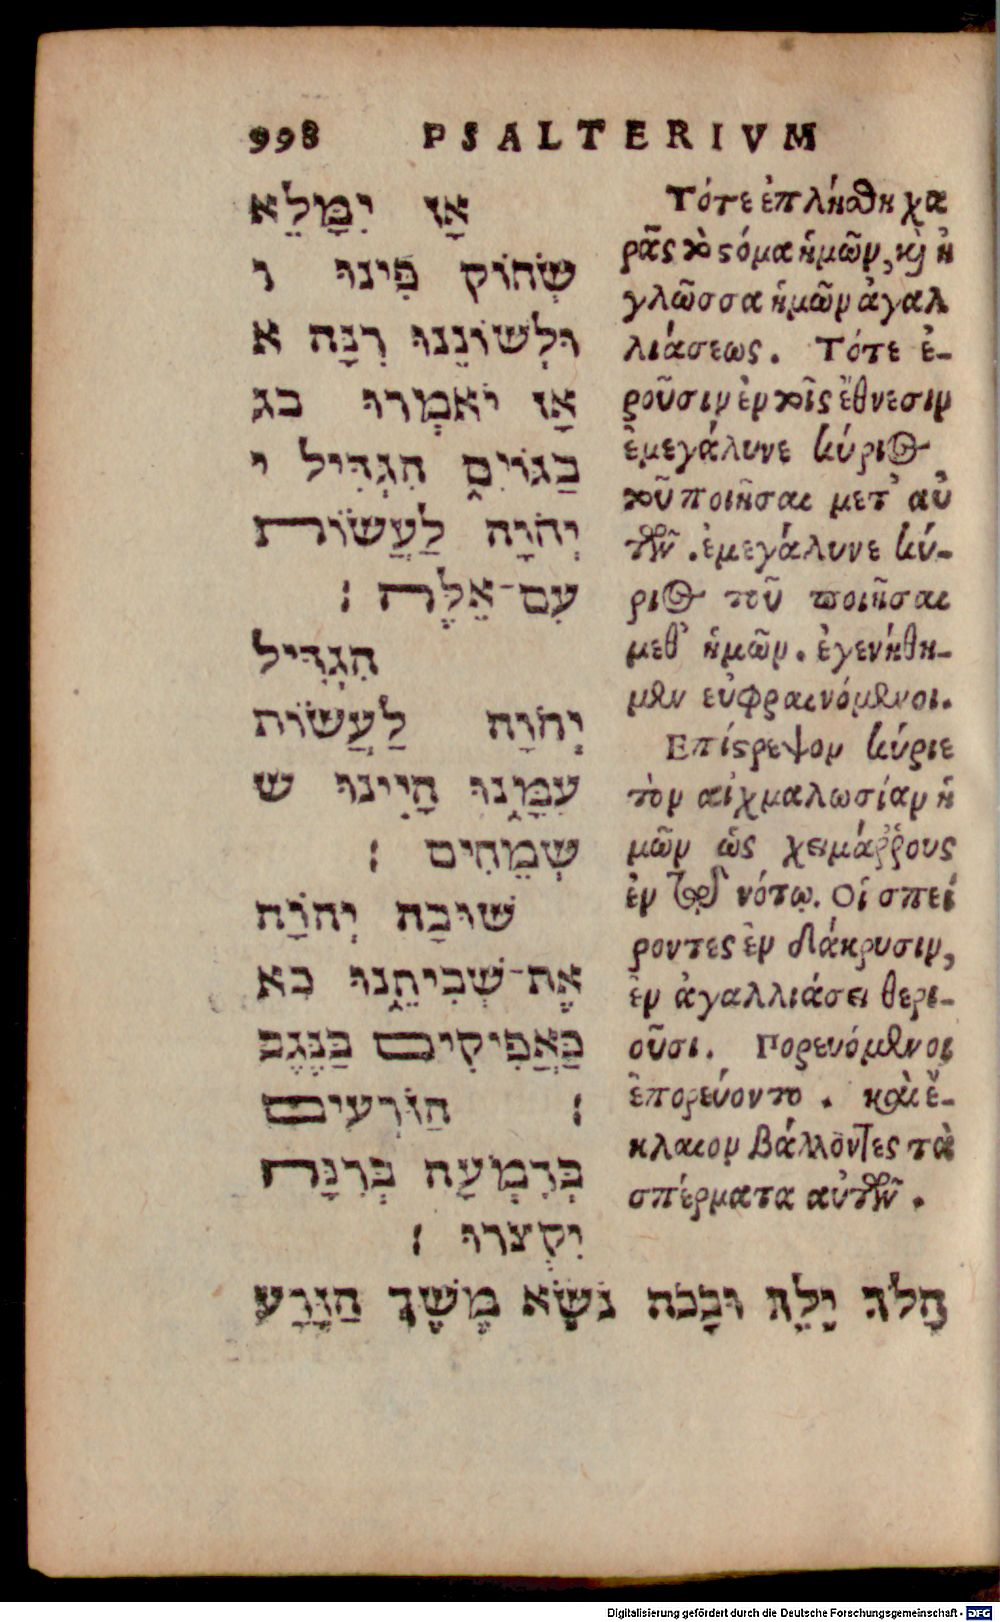 998 PSALTERIVM
אָז יִמָּלֵא
שְׂחוֹק פִּינוּ ו
וּלְשׁוֹנֵנוּ רִנָּה א
אָז יֹאמְרוּ בג
בַגּוֹיִם הִגְדִּיל י
יְהֹוָה לַעֲשׂוֹת
עִם־אֵלֶּה ׃
הִגְדִּיל
יְהֹוָה לַעֲשׂוֹת
עִמָּנוּ הָיִינוּ ש
שְׂמֵחִים ׃
שׁוּבָה יְהוָֹה
אֶת־שְׁבִיתֵנוּ כא
כַּאֲפִיקִים בַּנֶּגֶב
׃ הַזּוֹרְעִים
בְּדִמְעָה בְּרִנָּה
יִקְצֹרוּ ׃
הָלֹךְ יֵלֵךְ וּבָכֹה נֹשֵׂא מֶשֶׁךְ הַזָּרַע
Τότε ἐπλήσθη χα
ρᾶς τὸ ϛόμα ἡμῶν, κὶ ἡ
γλῶσσα ἡμῶν ἀγαλ
λιάσεως. Τότε ἐ-
ροῦσιν ἐν τοῖς ἔθνεσιν
ἐμεγάλυνε κύριος
τοῦ ποιῆσαι μετ' αὐ
τῶν. ἐμεγάλυνε κύ-
ριος τοῦ ποιῆσαι
μεθ' ἡμῶν. ἐγενήθη-
μεν εὐφραινόμενοι.
Επίϛρεψον κύριε
τὸν αἰχμαλωσίαν ἡ
μῶν ὡς χειμάῤῥους
ἐν τῷ νότῳ. Οἱ σπεί
ροντες ἐν δάκρυσιν,
ἐν ἀγαλλιάσει θερι-
οῦσι. Πορευόμενοι
ἐπορεύοντο. καὶ ἔ-
κλαιον βάλλοντες τὰ
σπέρματα αὐτῶν.
Digitalisierung gefördert durch die Deutsche Forschungsgemeinschaft - DFG